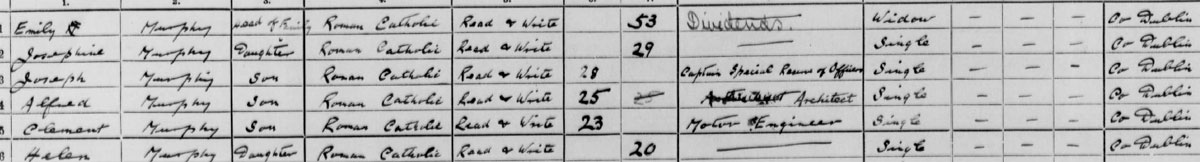 1. 2. 3. 4. 5.
1 Emily Murphy Head of Family Roman Catholic Read & Write 53 Dividends. Widow – – – Co Dublin
2 Josephine Murphy Daughter Roman Catholic Read & Write 29 Single – – – Co Dublin
3 Joseph Murphy Son Roman Catholic Read & Write 28 Captain Special Reserve of Officers Single – – – Co Dublin
4 Alfred Murphy Son Roman Catholic Read & Write 25 25 Architect Single – – – Co Dublin
5 Clement Murphy Son Roman Catholic Read & Write 23 Motor Engineer Single – – – Co Dublin
6 Helen Murphy Daughter Roman Catholic Read & Write 20 Single – – – Co Dublin